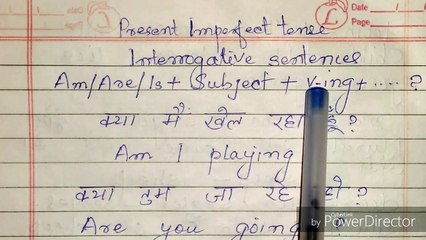 Date
Page
Present Imperfect tense
Interrogative sentences
Am/Are/Is + Subject + V-ing + .... ?
क्या मैं खेल रहा हूँ ?
Am I playing
क्या तुम जा रहे हो ?
Are you going
POWERED BY
CyberLink
PowerDirector